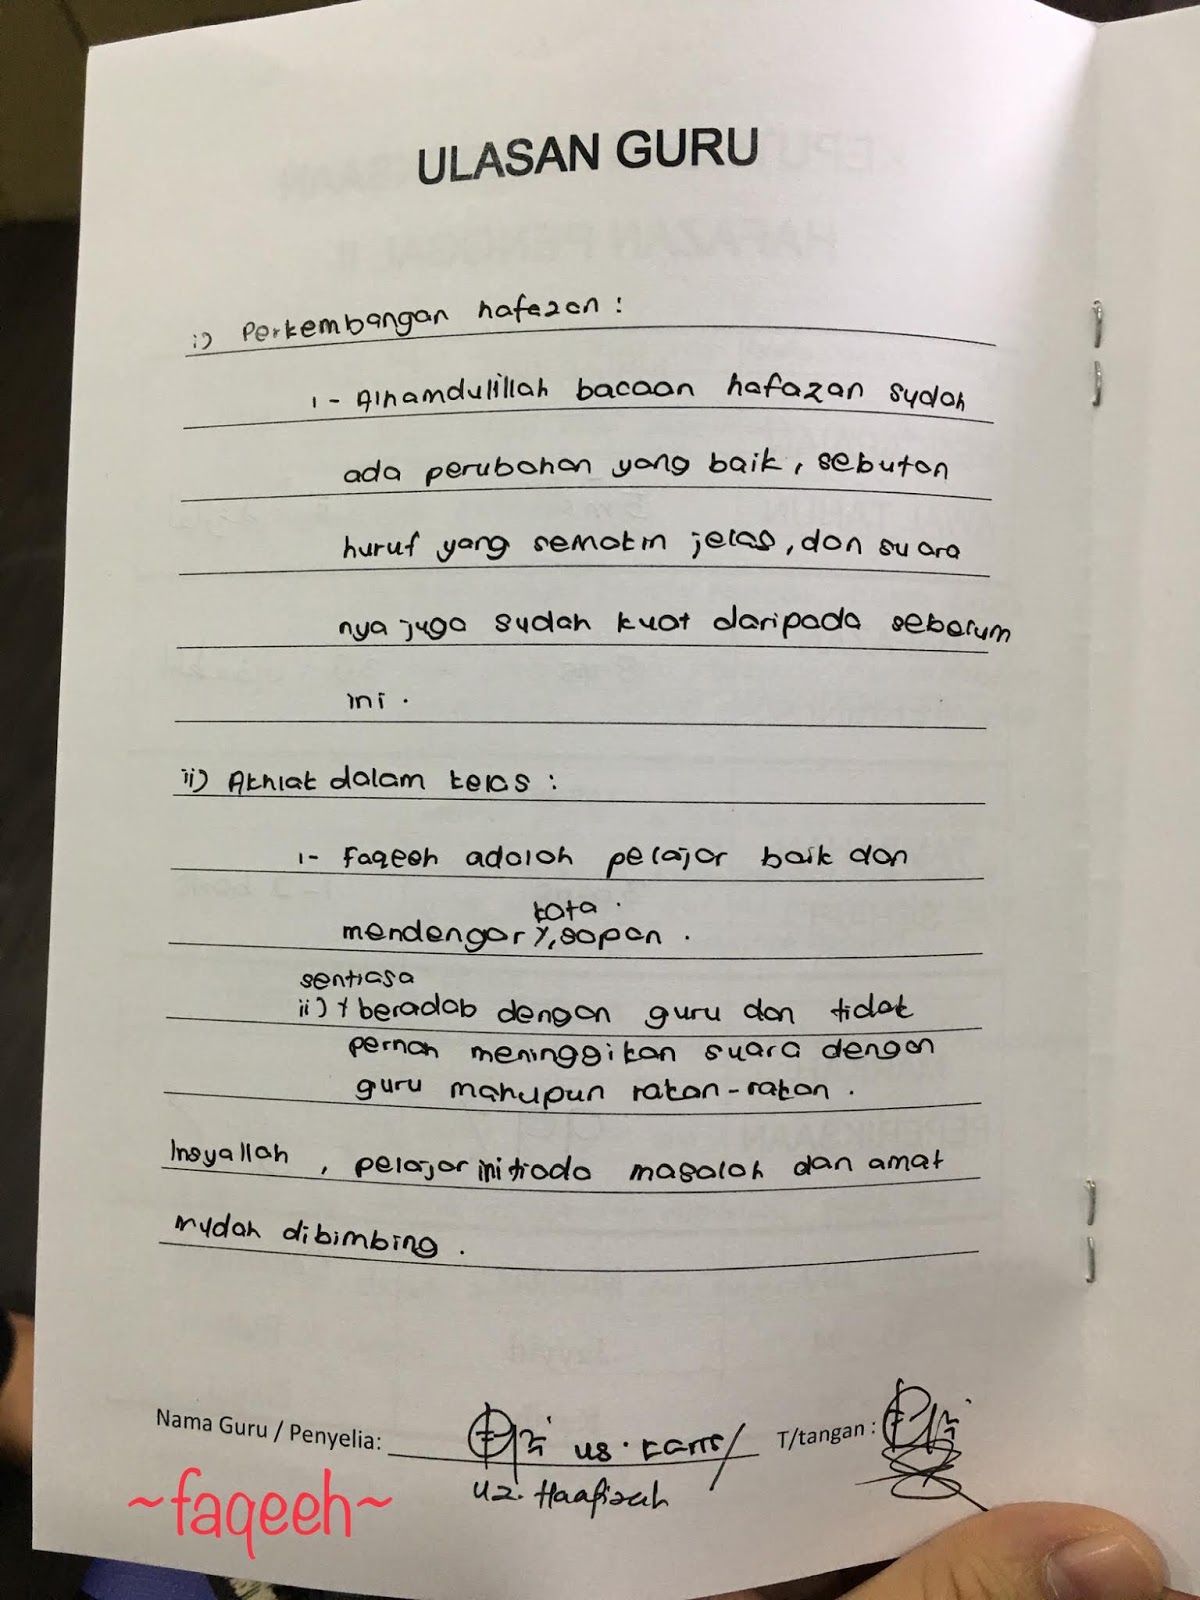 ULASAN GURU
i) Perkembangan hafazan :
1 - Alhamdulillah bacaan hafazan sudah
ada perubahan yang baik, sebutan
huruf yang semakin jelas, dan suara
nya juga sudah kuat daripada sebelum
ini .
ii) Akhlak dalam kelas :
1- faqeeh adalah pelajar baik dan
kata .
mendengar y, sopan .
sentiasa
ii) y beradab dengan guru dan tidak
pernah meninggikan suara dengan
guru mahupun rakan-rakan .
Insyallah , pelajar ini tiada masalah dan amat
mudah dibimbing .
Nama Guru / Penyelia: us. / T/tangan :
uz. Haafizah
~faqeeh~